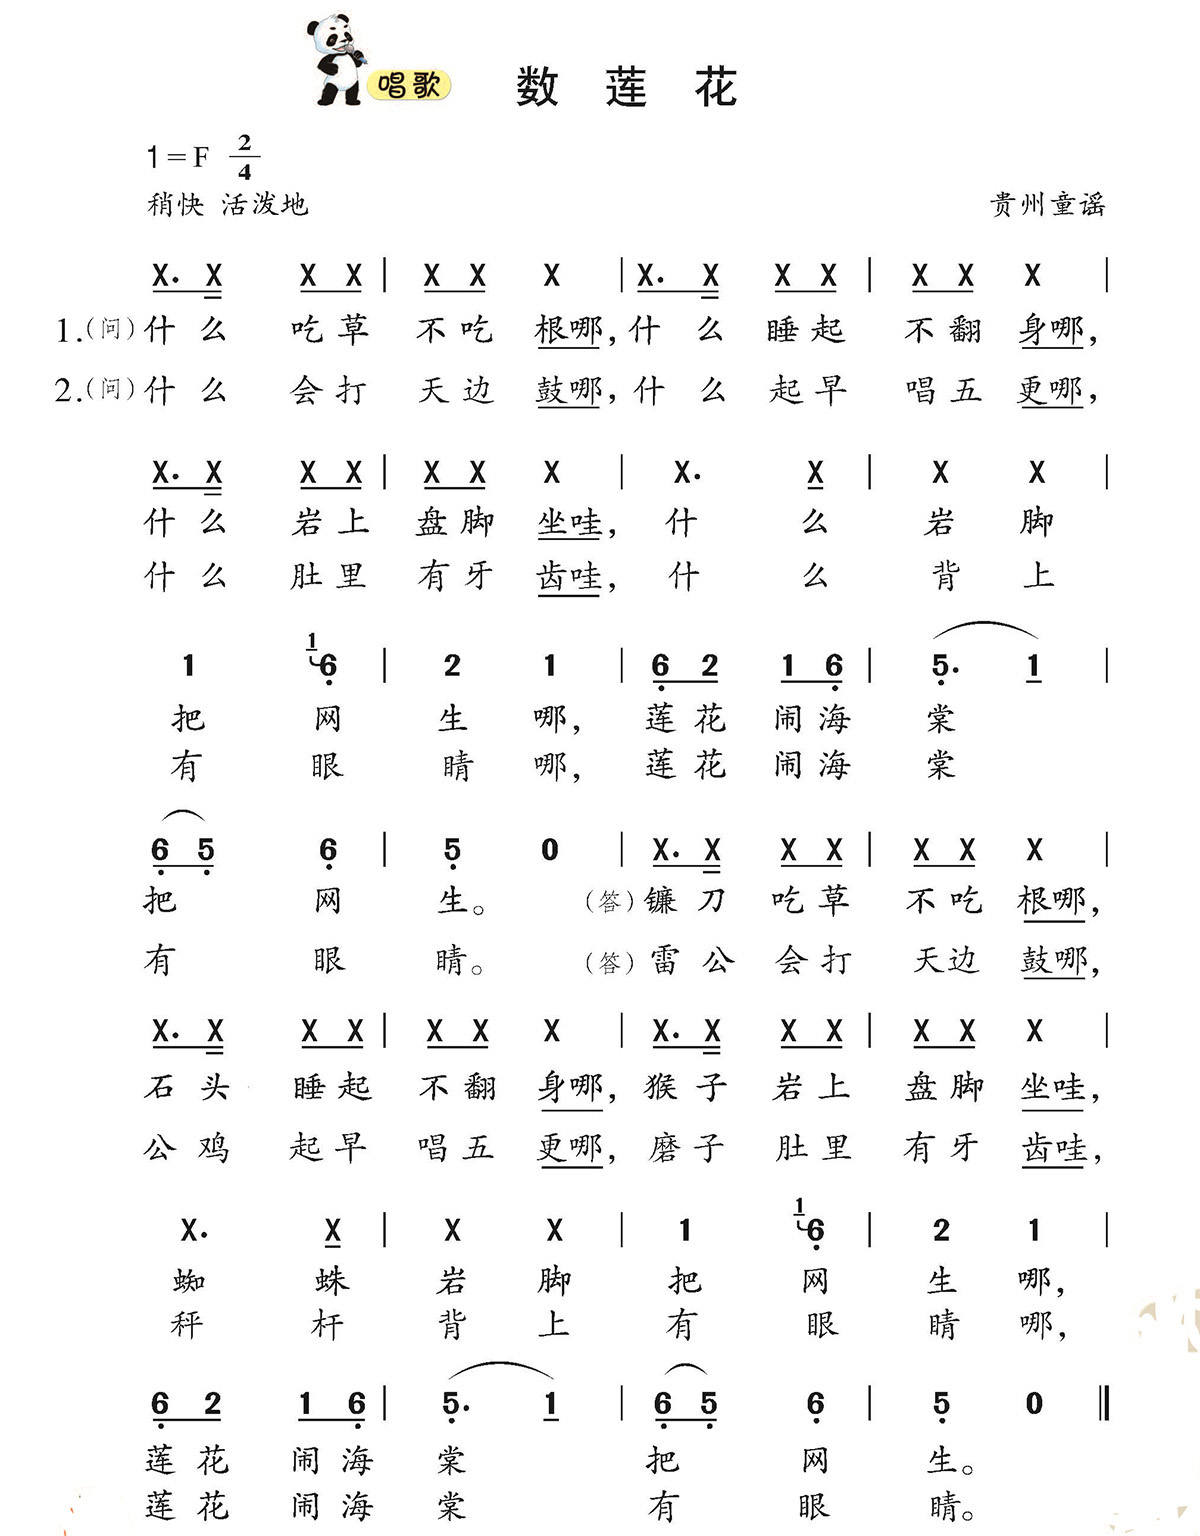 唱歌 数 莲 花
1=F 2/4
稍快 活泼地 贵州童谣
X. X X X | X X X | X. X X X | X X X |
1.(问)什 么 吃 草 不 吃 根哪,什 么 睡 起 不 翻 身哪,
2.(问)什 么 会 打 天 边 鼓哪,什 么 起 早 唱 五 更哪,
X. X X X | X X X | X. X | X X |
什 么 岩 上 盘 脚 坐哇, 什 么 岩 脚
什 么 肚 里 有 牙 齿哇, 什 么 背 上
1 1 6 | 2 1 | 6 2 1 6 | 5. 1 |
把 网 生 哪, 莲 花 闹 海 棠
有 眼 睛 哪, 莲 花 闹 海 棠
6 5 6 | 5 0 | X. X X X | X X X |
把 网 生。 (答)镰 刀 吃 草 不 吃 根哪,
有 眼 睛。 (答)雷 公 会 打 天 边 鼓哪,
X. X X X | X X X | X. X X X | X X X |
石 头 睡 起 不 翻 身哪, 猴 子 岩 上 盘 脚 坐哇,
公 鸡 起 早 唱 五 更哪, 磨 子 肚 里 有 牙 齿哇,
X. X | X X | 1 1 6 | 2 1 |
蜘 蛛 岩 脚 把 网 生 哪,
秤 杆 背 上 有 眼 睛 哪,
6 2 1 6 | 5. 1 | 6 5 6 | 5 0 ‖
莲 花 闹 海 棠 把 网 生。
莲 花 闹 海 棠 有 眼 睛。